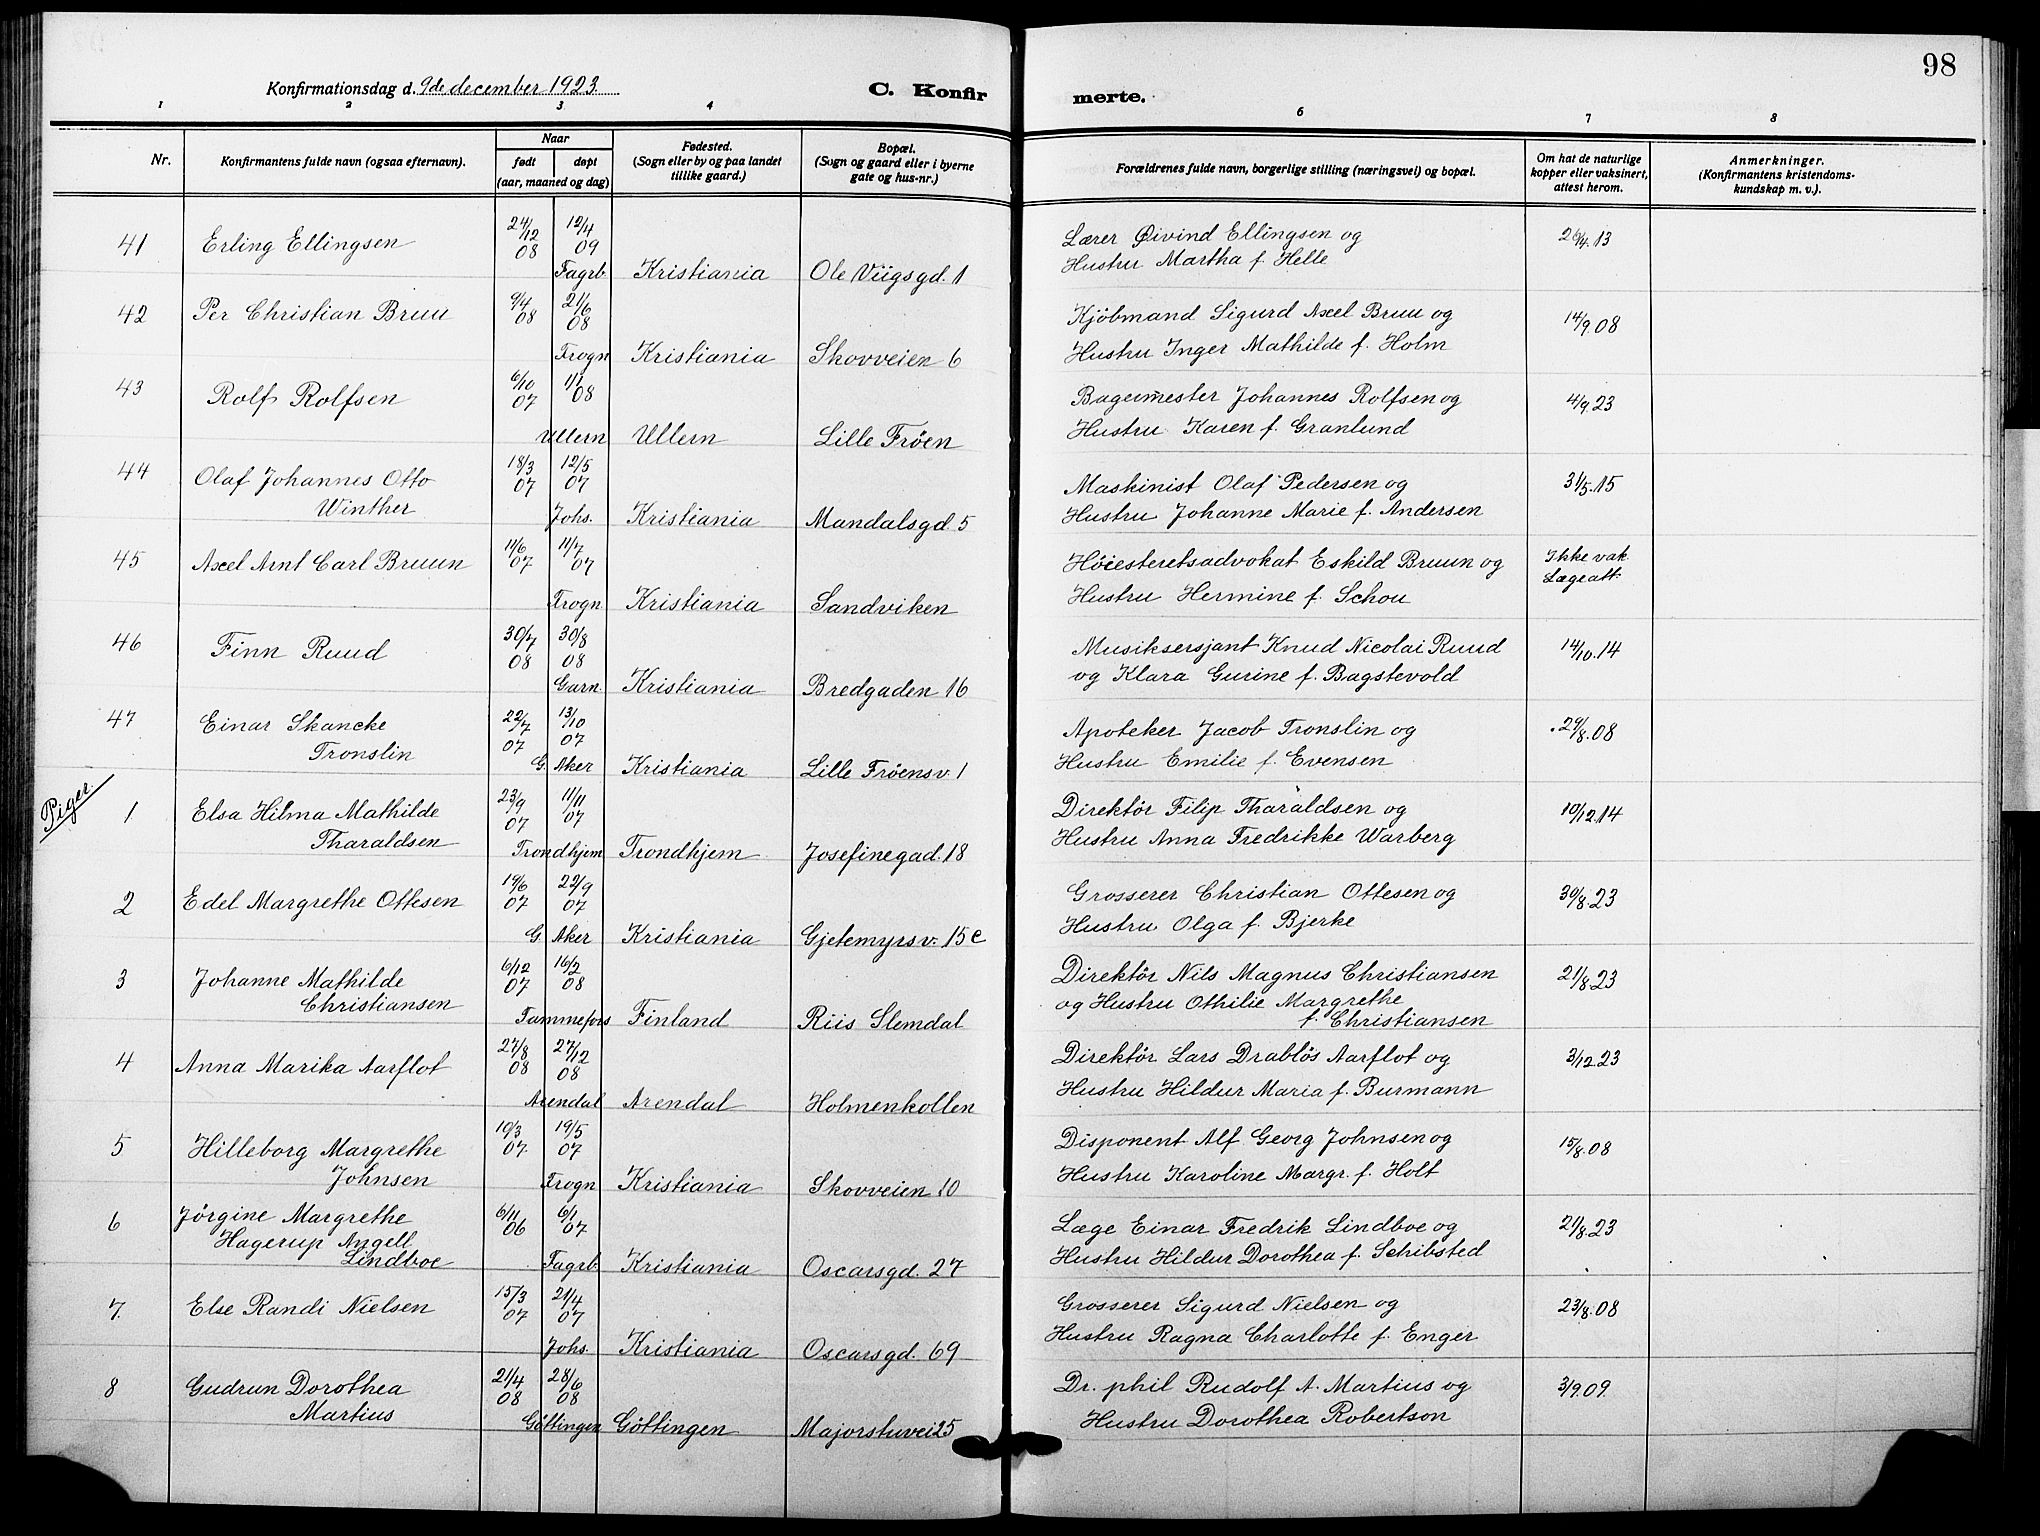 98
Konfirmationsdag d. 9de december 1923. C. Konfir merte.
1 2 3 4 6 7 8
Nr.
Konfirmantens fulde navn (ogsaa efternavn).
Naar
født døpt
(aar, maaned og dag)
Fødested.
(Sogn eller by og paa landet
tillike gaard.)
Bopæl.
(Sogn og gaard eller i byerne
gate og hus-nr.)
Forældrenes fulde navn, borgerlige stilling (næringsvei) og bopæl.
Om hat de naturlige
kopper eller vaksinert,
attest herom.
Anmerkninger.
(Konfirmantens kristendoms-
kundskap m. v.).
41 Erling Ellingsen 24/12 08 12/4 09 Lærer Øivind Ellingsen og 26/4.13
Fagrb. Kristiania Ole Viigsgd. 1 Hustru Martha f. Helle
42 Per Christian Bruu 9/4 08 21/6 08 Kjöbmand Sigurd Axel Bruu og 14/9.08
Frogn Kristiania Skovveien 6 Hustru Inger Mathilde f. Holm
43 Rolf Rolfsen 6/10 07 1/1 08 Bagermester Johannes Rolfsen og 4/9.23
Ullern Ullern Lille Frøen Hustru Karen f. Granlund
44 Olaf Johannes Otto 18/3 07 12/5 07 Maskinist Olaf Pedersen og 31/5.15
Winther Johs. Kristiania Mandalsgd. 5 Hustru Johanne Marie f. Andersen
45 Axel Arnt Carl Bruun 11/6 07 11/7 07 Höiesteretsadvokat Eskild Bruun og Ikke vak.
Lægeatt.
Frogn Kristiania Sandviken Hustru Hermine f. Schou
46 Finn Ruud 30/7 08 30/8 08 Musiksersjant Knud Nicolai Ruud 14/10.14
Garn. Kristiania Bredgaden 16 og Klara Gurine f. Bagstevold
47 Einar Skancke 22/7 07 13/10 07 Apoteker Jacob Tronslin og 29/8.08
Tronslin G. Aker Kristiania Lille Frøensv. 1 Hustru Emilie f. Evensen
Piger
1 Elsa Hilma Mathilde 23/9 07 11/11 07 Direktör Filip Tharaldsen og 10/12.14
Tharaldsen Trondhjem Trondhjem Josefinegad. 18 Hustru Anna Fredrikke Warberg
2 Edel Margrethe Ottesen 19/6 07 22/9 07 Grosserer Christian Ottesen og 30/8.23
G. Aker Kristiania Gjetemyrsv. 15c Hustru Olga f. Bjerke
3 Johanne Mathilde 6/12 07 16/2 08 Direktör Nils Magnus Christiansen 21/8.23
Christiansen og Hustru Othilie Margrethe
Tammefors Finland Riis Slemdal f. Christiansen
4 Anna Marika Aarflot 27/8 08 27/12 08 Direktör Lars Drablös Aarflot og 3/12.23
Arendal Arendal Holmenkollen Hustru Hildur Maria f. Burmann
5 Hilleborg Margrethe 10/3 07. 19/5 07 Disponent Alf Georg Johnsen og 15/8.08
Johnsen Frogn Kristiania Skovveien 10 Hustru Karoline Margr. f. Holt
6 Jörgine Margrethe 6/11 06 6/1 07 Læge Einar Fredrik Lindboe og 21/8.23
Hagerup Angell
Lindboe Fagrb. Kristiania Oscarsgd. 27 Hustru Hildur Dorothea f. Schibsted
7. Else Randi Nielsen 15/3 07 21/4 07 Grosserer Sigurd Nielsen og 23/8.08
Johs. Kristiania Oscarsgd. 69 Hustru Ragna Charlotte f. Enger
8 Gudrun Dorothea 21/4 08 28/6 08 Dr. phil Rudolf A. Martius og 3/9.09.
Martius Göttingen Göttingen Majorstuvei 25 Hustru Dorothea Robertson